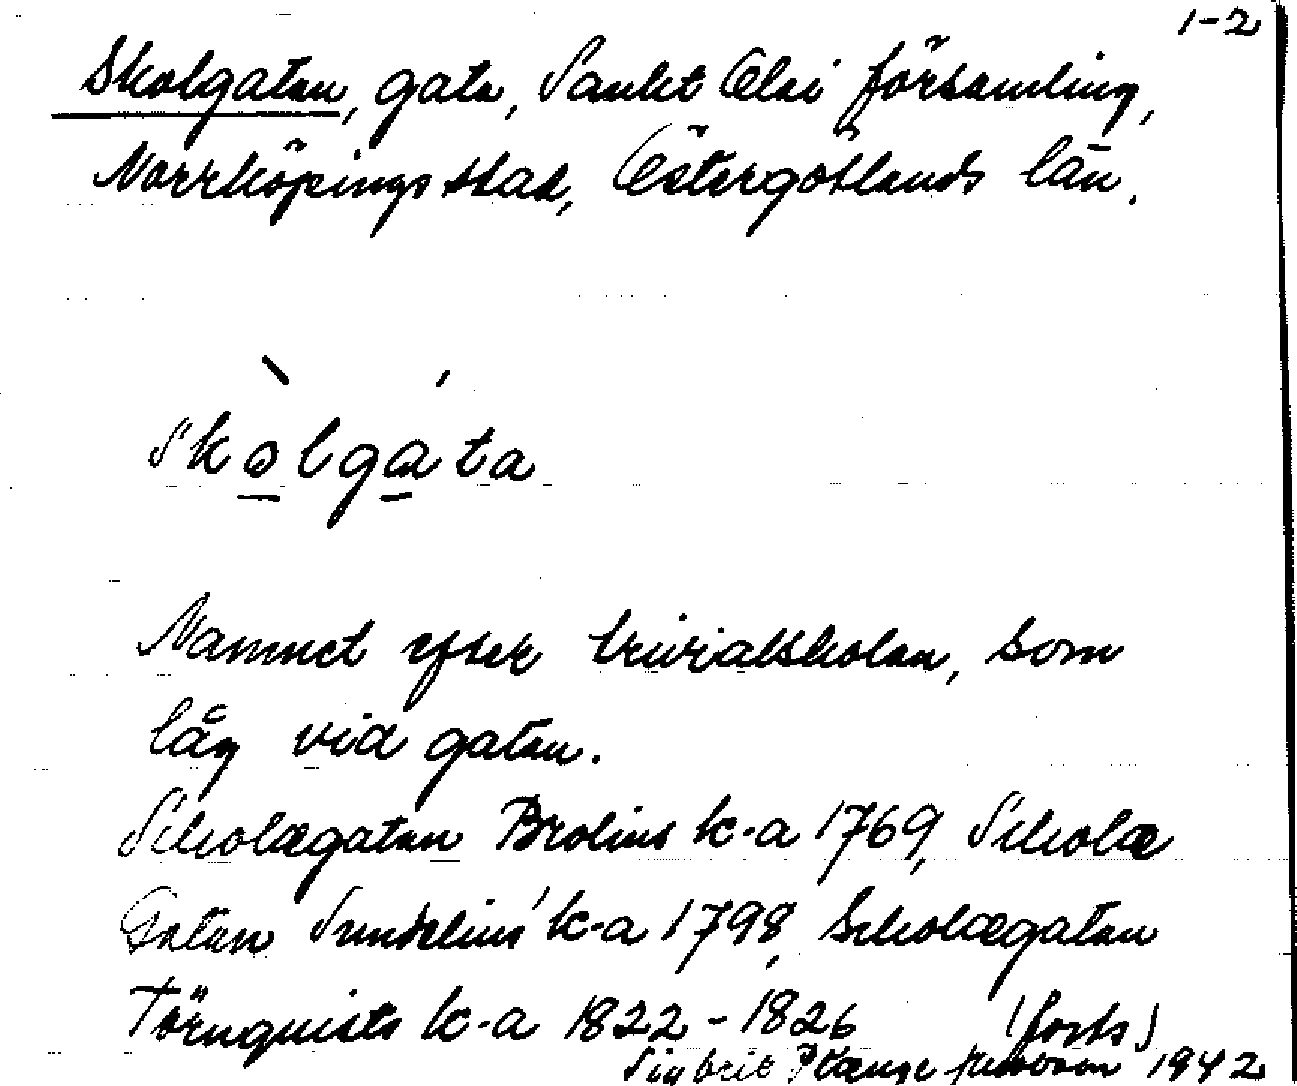 1-2
Skolgatan, gata, Sankt Olai församling,
Norrköpings stad, Östergötlands län.
skolgata
Namnet efter trivialskolan, som
låg vid gatan.
Scholægatan Brolins k-a 1769, Scholæ
Gatan Sundelius' k-a 1798, Scholægatan
Törnquists k-a 1822-1826 (forts)
Sigbrit Plænge 1942